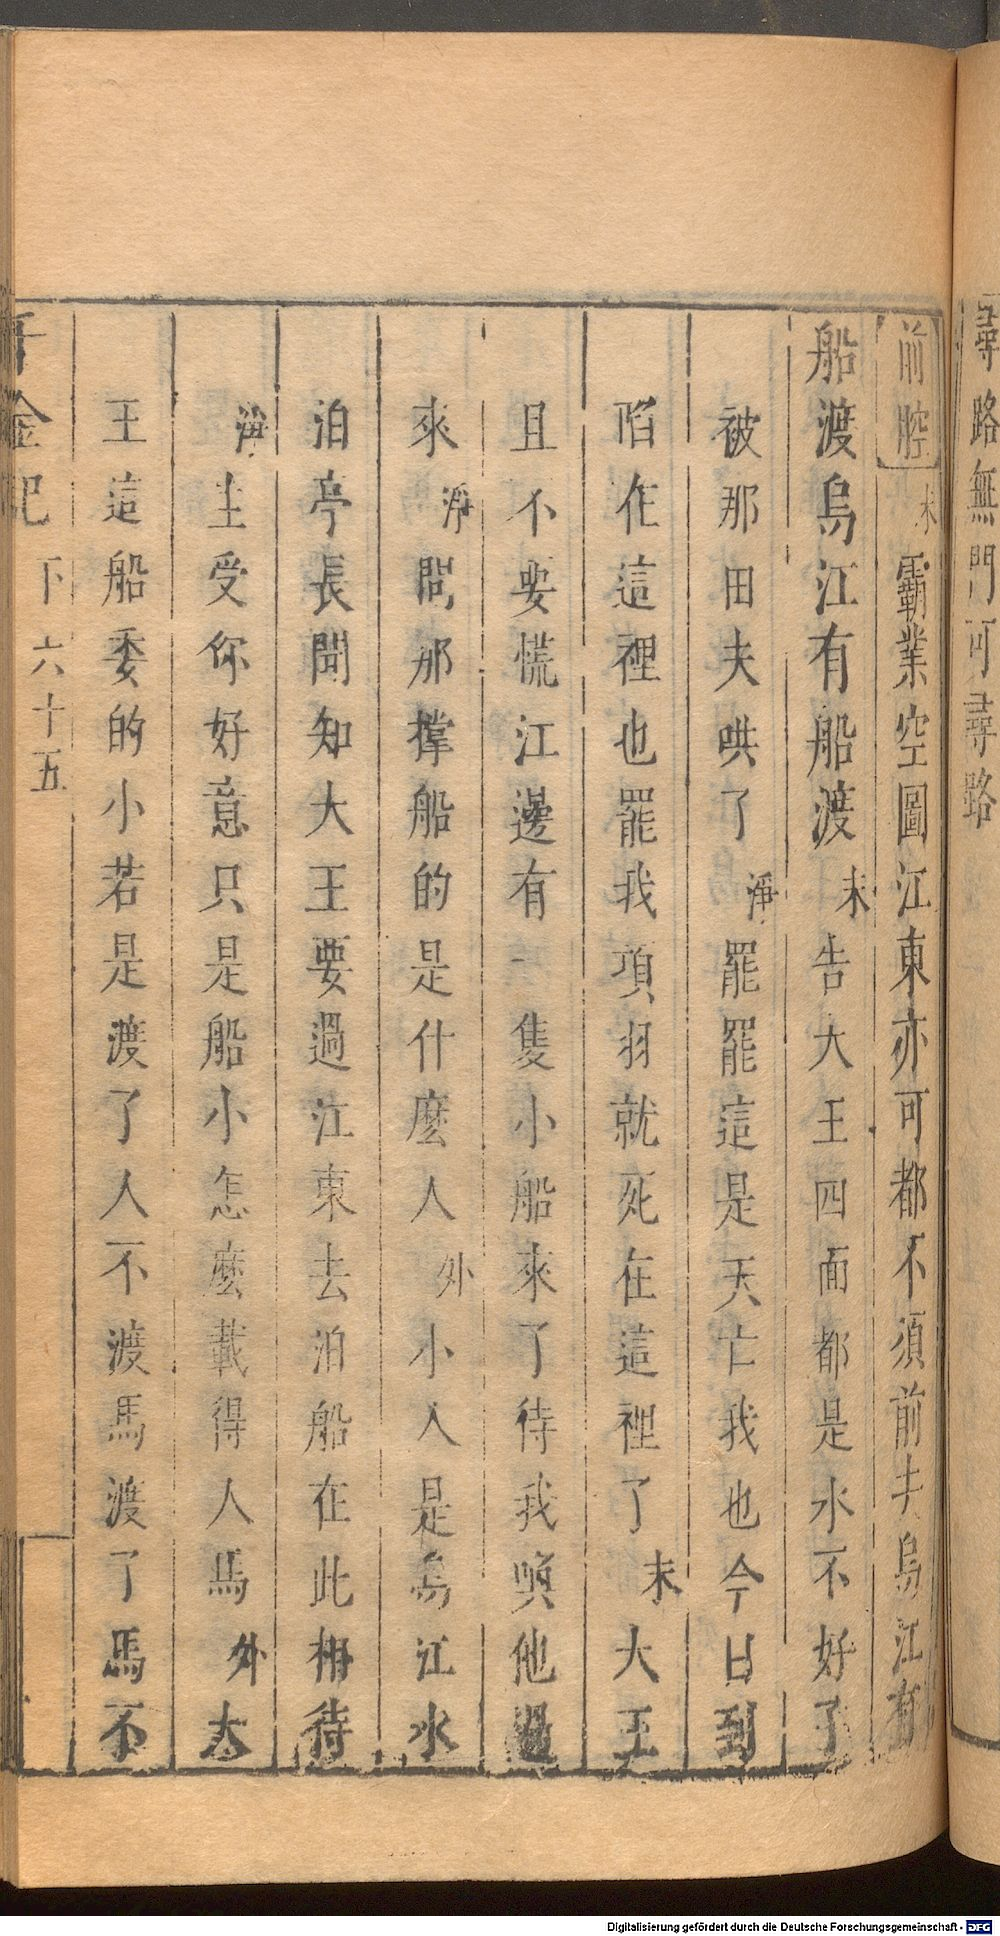 尋路無門可尋路
前腔末霸業空圖江東亦可都不須前去烏江有
船渡烏江有船渡末告大王四面都是水不好了
被那田夫哄了淨罷罷這是天亡我也今日到
陷在這裡也罷我項羽就死在這裡了末大王
且不要慌江邊有一隻小船來了待我喚他過
來淨問那撑船的是什麼人外小人是烏江水
泊亭長聞知大王要過江東去泊船在此相待
淨生受你好意只是船小怎麼載得人馬外大
王這船委的小若是渡了人不渡馬渡了馬不
千金記 下 六十五
Digitalisierung gefördert durch die Deutsche Forschungsgemeinschaft - DFG